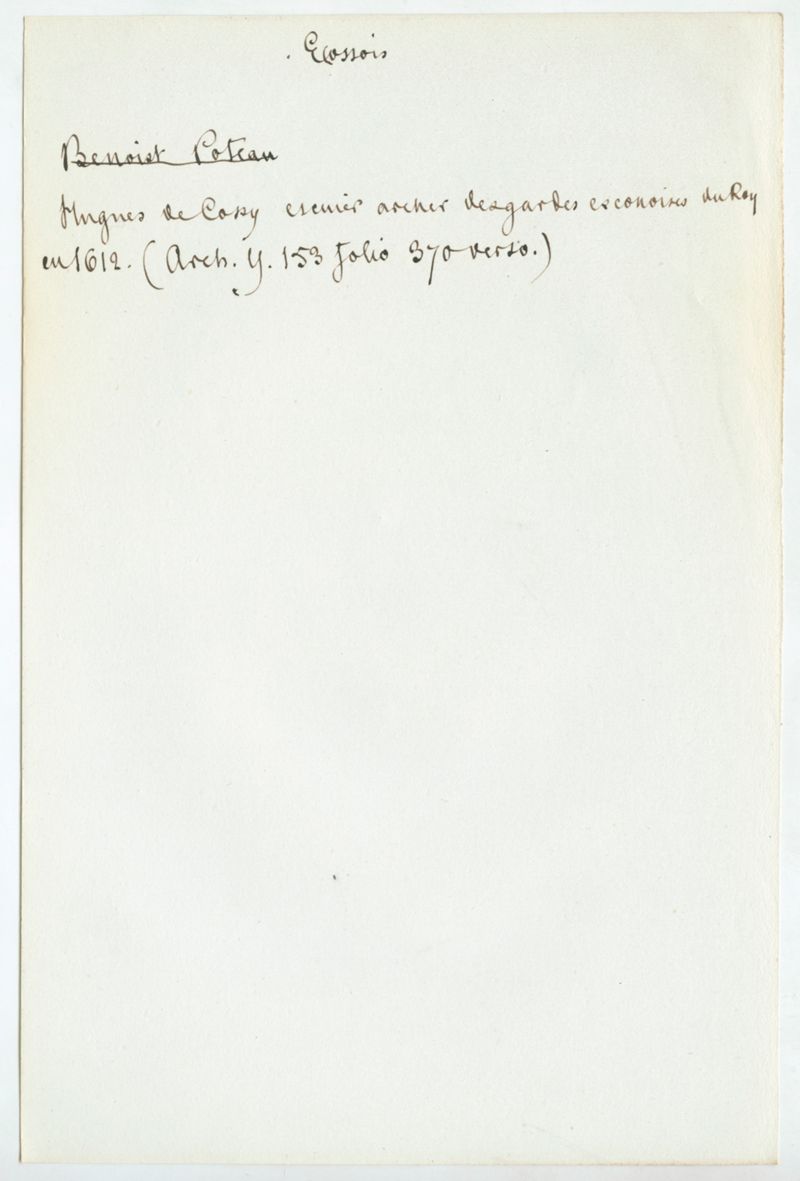 Ecossois
Benoist Poteau
Hugues de Cossy escuier archer des gardes esconoises du Roy
en 1612. (Arch. Y. 153 folio 370 verso.)